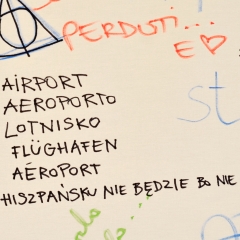 PERDUTI...
E
st
AIRPORT
AEROPORTO
LOTNISKO
FLÜGHAFEN
AÉROPORT
HISZPAŃSKU NIE BĘDZIE BO NIE